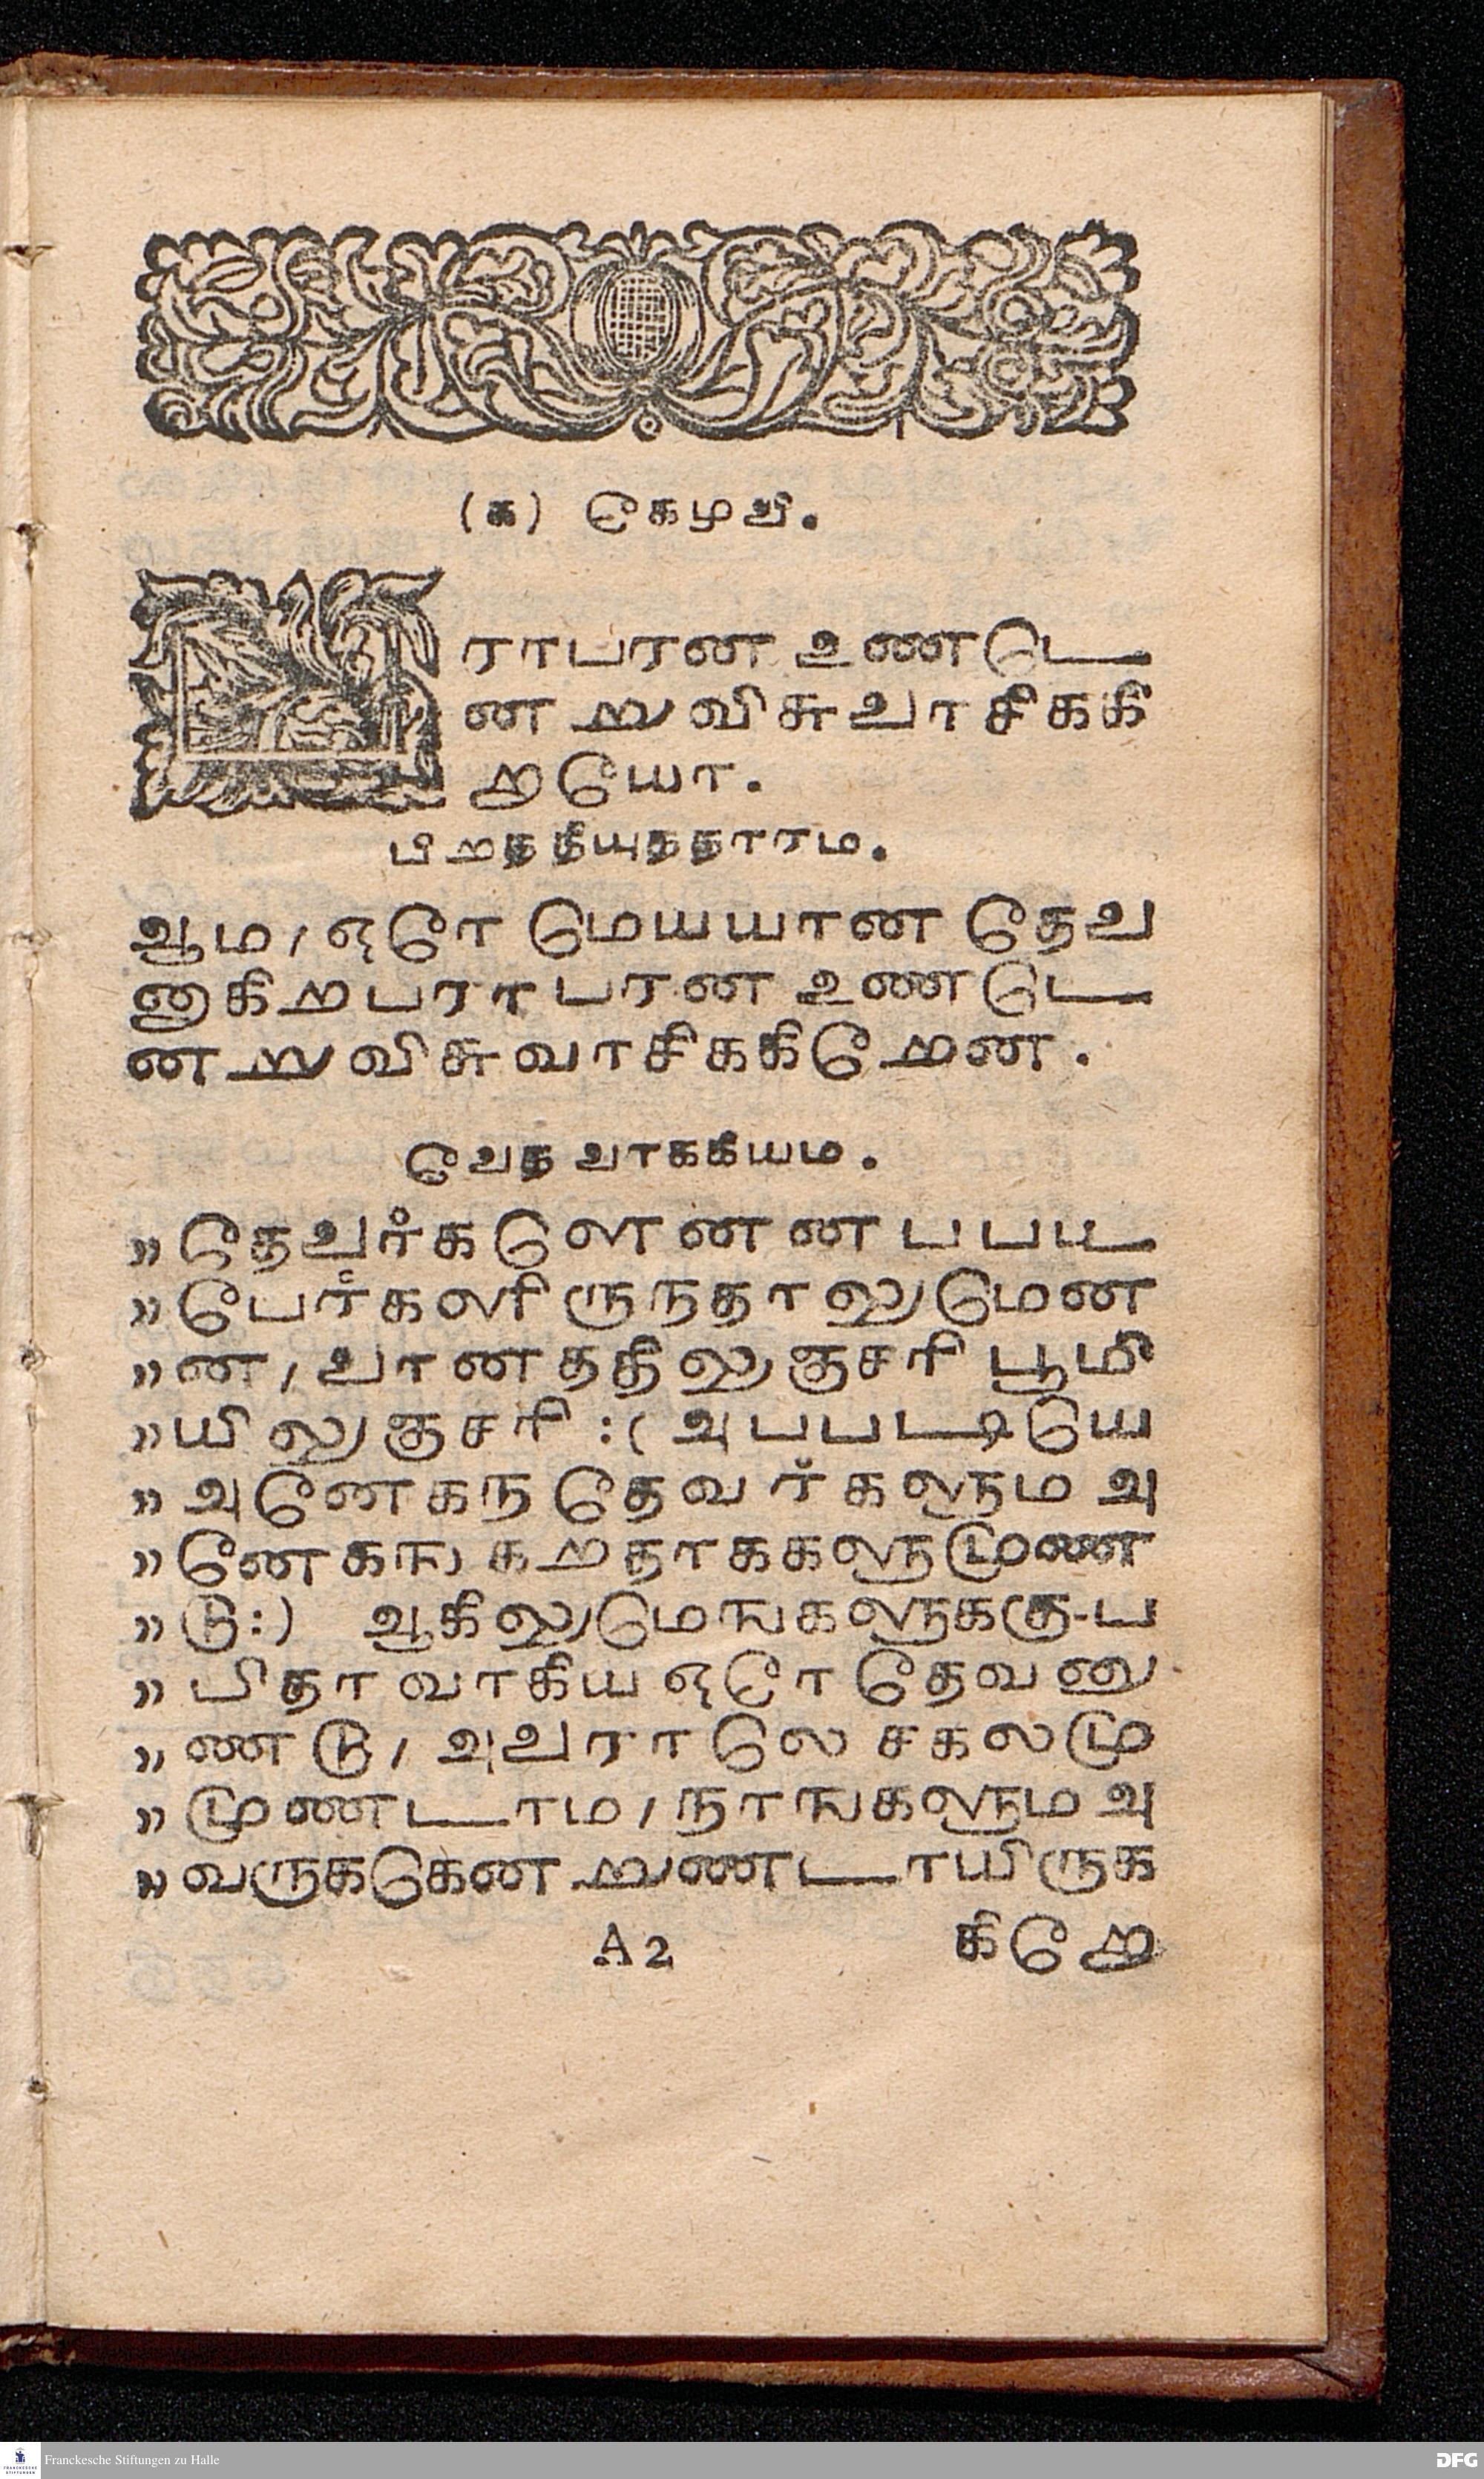 (க) கெழவி.
பராபரன உணடெ
ன றுவிசுவாசிககி
றயொ.
பிறததியுததாரம.
ஆம, ஒரெ மெயயான தெவ
னுகிறபராபரன உணடெ
னறுவிசுவாசிககிறென.
வெத வாககியம.
» தெவர்களெனனபபட
» பெர்களிருநதாலுமென
» ன, வானததிலுஞசரி பூமி
» யிலுஞசரி :( அபபடியெ
» அனெகந தெவர்களும அ
» னெகங கறதாககளுமுண
» டு:) ஆகிலுமெஙகளுககு-ப
» பிதாவாகிய ஒரெ தெவனு
» ணடு, அவராலெ சகலமு
» முணடாம, நாஙகளும அ
» வருககெனறுணடாயிருக
A 2 கிறெ
Franckesche Stiftungen zu Halle
FRANCKESCHE STIFTUNGEN
DFG